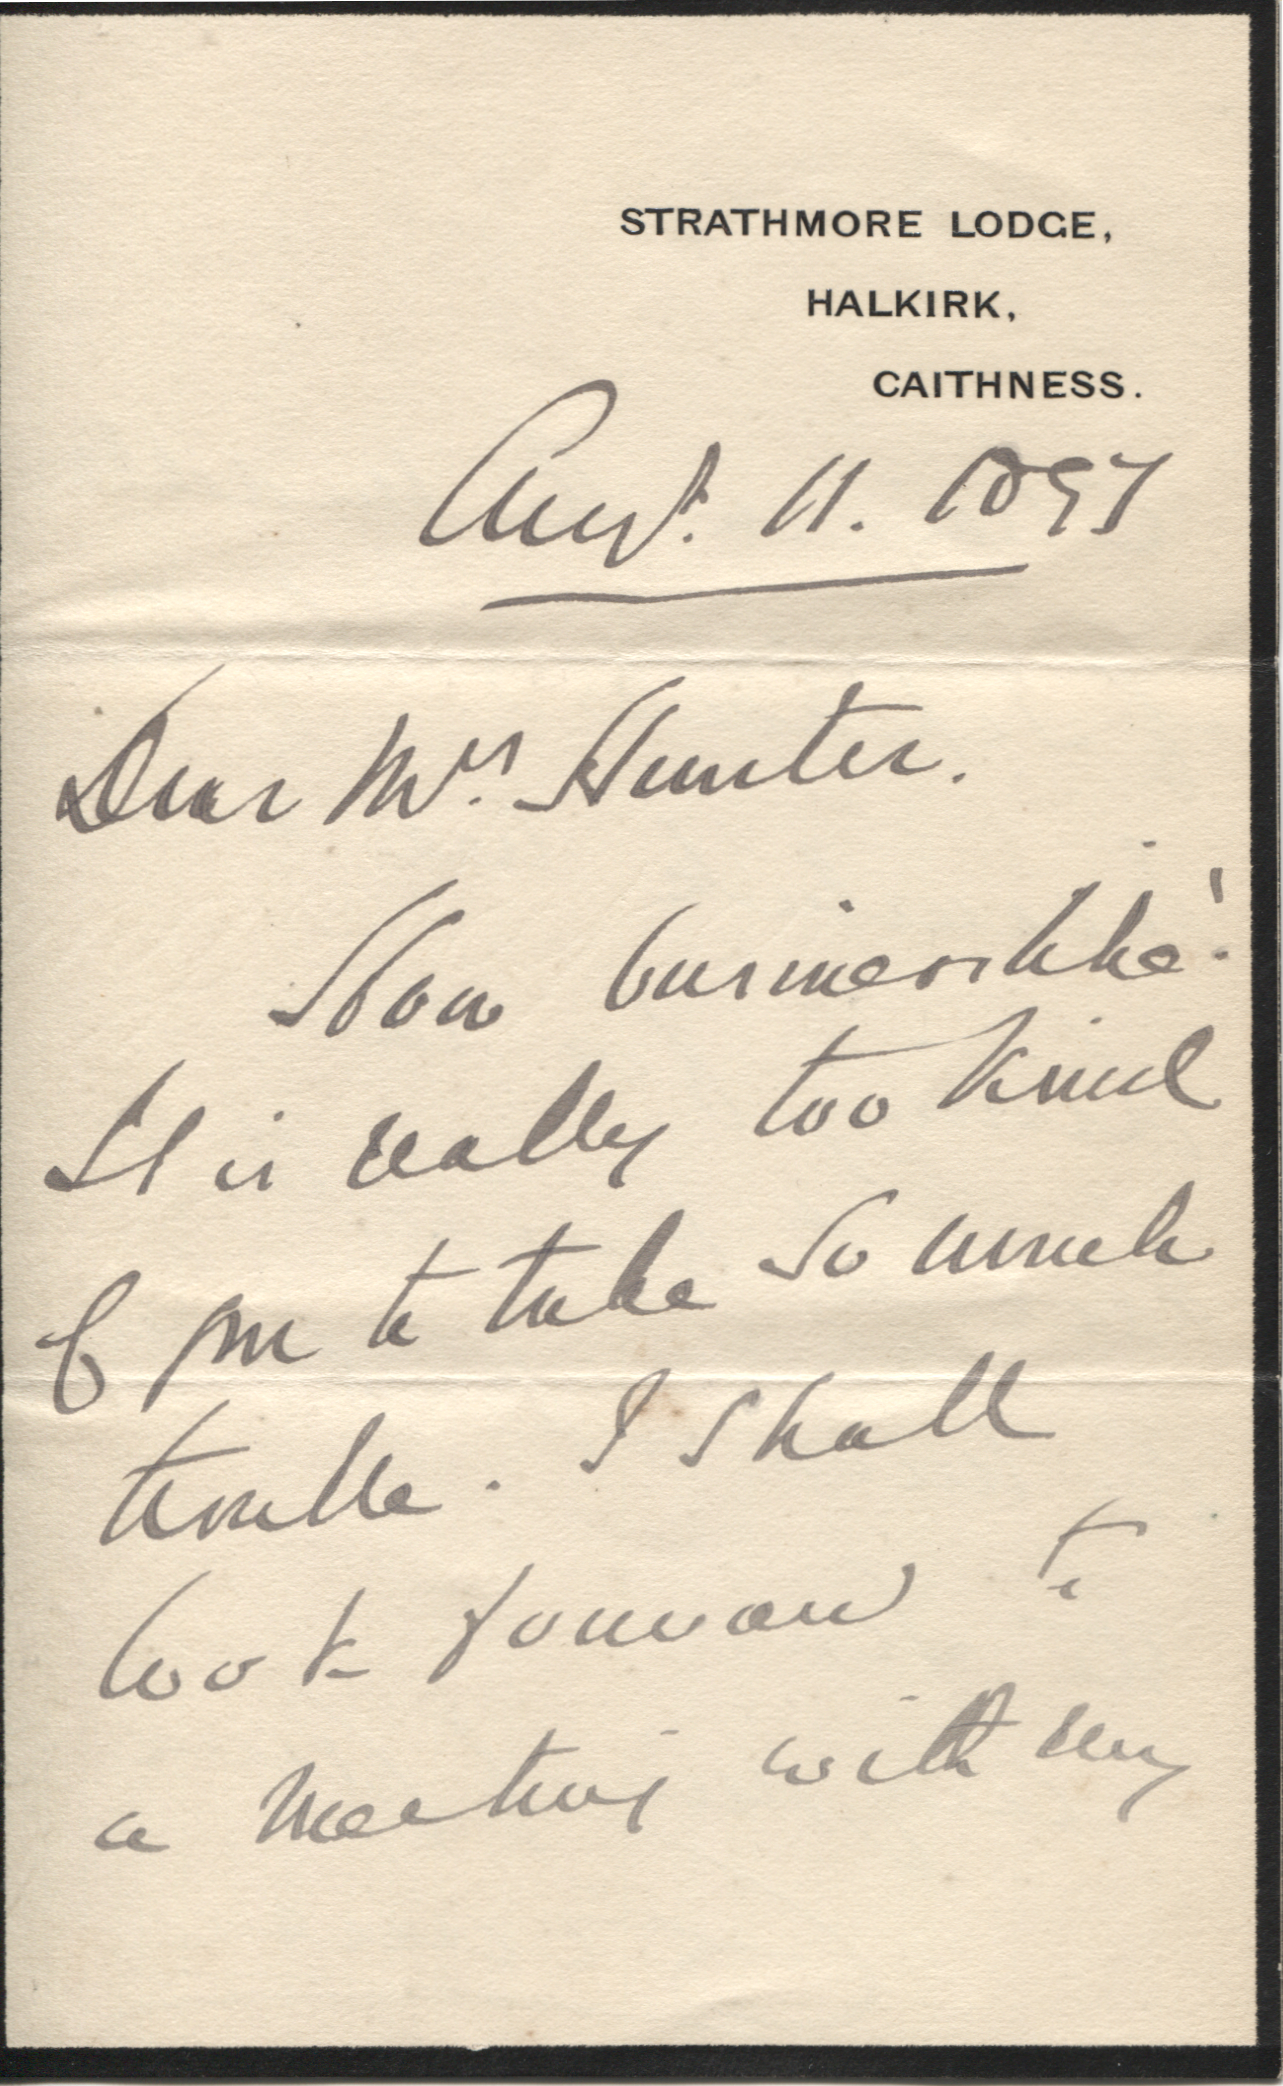 STRATHMORE LODGE,
HALKIRK,
CAITHNESS.
Augt. 11. 1897
Dear Mrs. Hunter.
How businesslike!
It is really too kind
of you to take so much
trouble. I shall
look forward to
a meeting with my